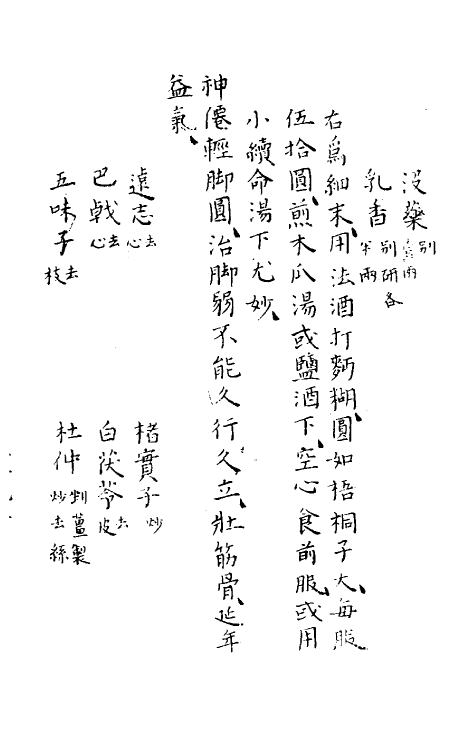 沒藥別壹兩
乳香別研各半兩
右爲細末用法酒打麪糊圓如梧桐子大每服
伍拾圓煎木瓜湯或鹽酒下空心食前服或用
小續命湯下尤妙
神僊輕脚圓治脚弱不能久行久立壯筋骨延年
益氣
遠志去心 楮實子炒
巴戟去心 白茯苓去皮
五味子去枝 杜仲剉薑製炒去絲